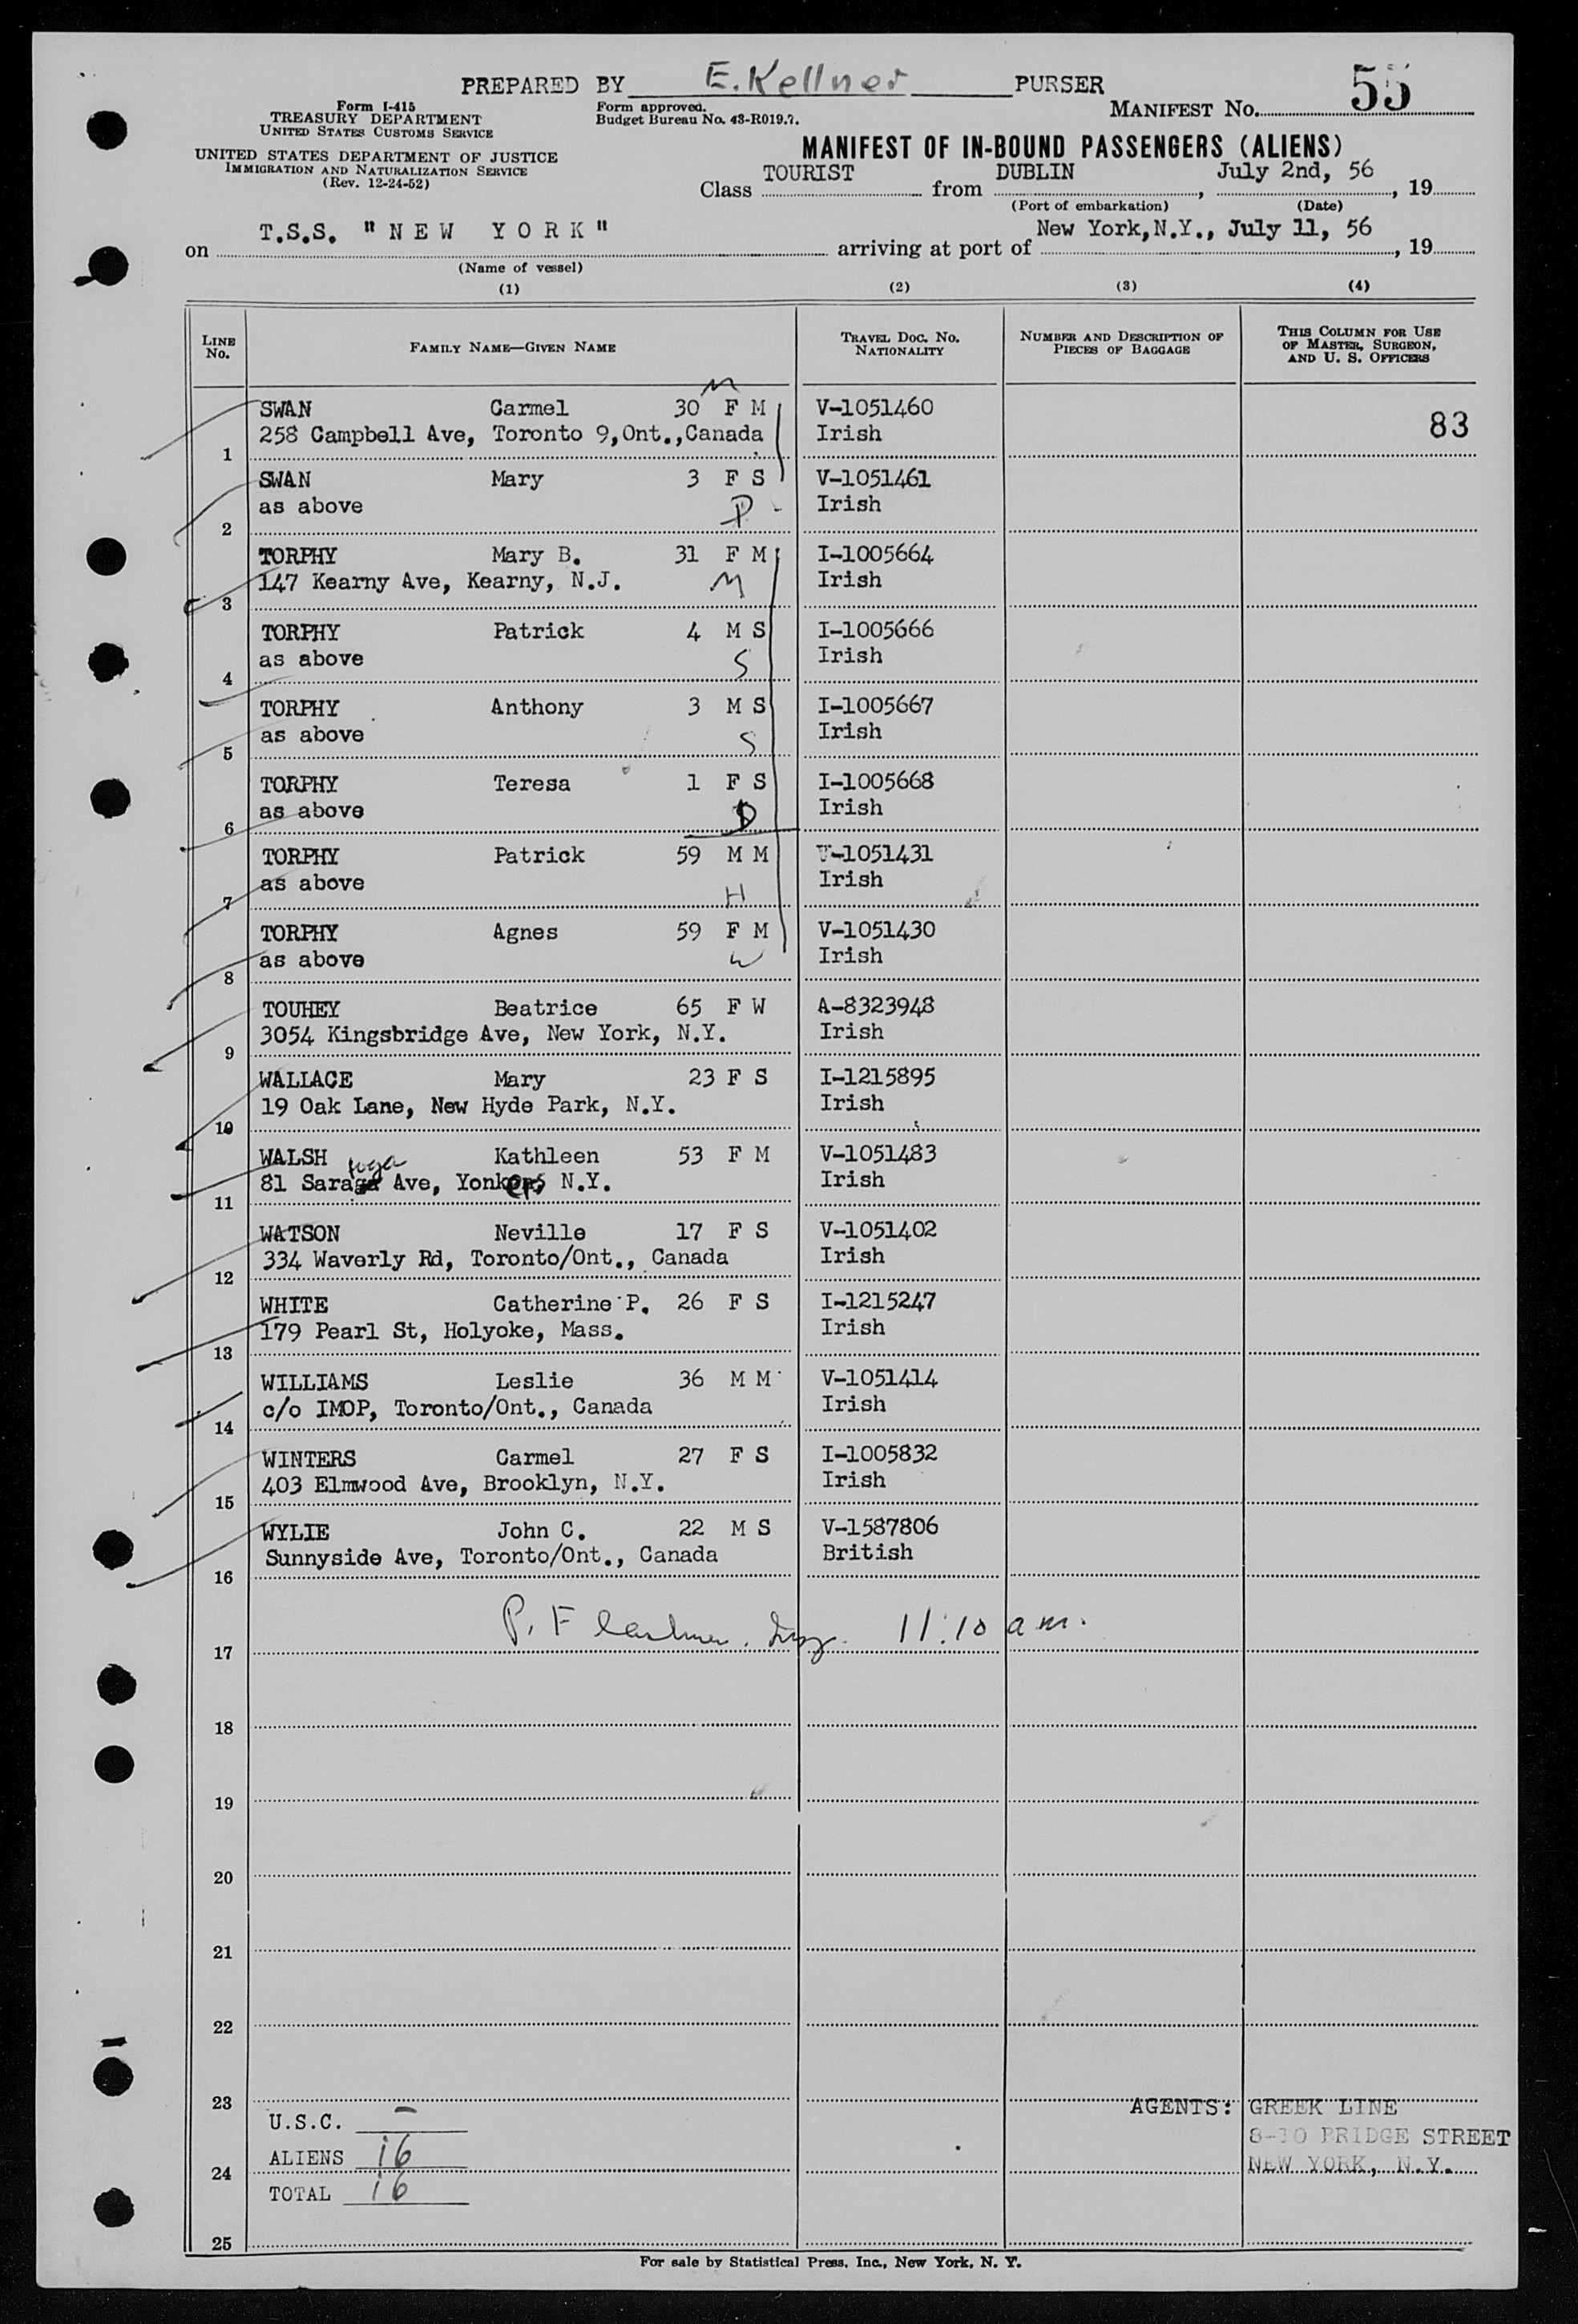 PREPARED BY E. Kellner PURSER
Form I-415
TREASURY DEPARTMENT
UNITED STATES CUSTOMS SERVICE
Form approved.
Budget Bureau No. 43-R019.7.
MANIFEST No. 55
UNITED STATES DEPARTMENT OF JUSTICE
IMMIGRATION AND NATURALIZATION SERVICE
(Rev. 12-24-52)
MANIFEST OF IN-BOUND PASSENGERS (ALIENS)
Class TOURIST from DUBLIN, July 2nd, 56, 19
(Port of embarkation) (Date)
on T.S.S. "NEW YORK" arriving at port of New York, N.Y., July 11, 56, 19
(Name of vessel)
(1) (2) (3) (4)
LINE No. FAMILY NAME—GIVEN NAME TRAVEL DOC. No. NATIONALITY NUMBER AND DESCRIPTION OF PIECES OF BAGGAGE THIS COLUMN FOR USE OF MASTER, SURGEON, AND U. S. OFFICERS
M
SWAN Carmel 30 F M V-1051460 83
1 258 Campbell Ave, Toronto 9, Ont., Canada Irish
SWAN Mary 3 F S V-1051461
2 as above Irish
TORPHY Mary B. 31 F M I-1005664
3 147 Kearny Ave, Kearny, N.J. M Irish
TORPHY Patrick 4 M S I-1005666
4 as above S Irish
TORPHY Anthony 3 M S I-1005667
5 as above S Irish
TORPHY Teresa 1 F S I-1005668
6 as above D Irish
TORPHY Patrick 59 M M V-1051431
7 as above H Irish
TORPHY Agnes 59 F M V-1051430
8 as above W Irish
TOUHEY Beatrice 65 F W A-8323948
9 3054 Kingsbridge Ave, New York, N.Y. Irish
WALLACE Mary 23 F S I-1215895
10 19 Oak Lane, New Hyde Park, N.Y. Irish
WALSH Kathleen 53 F M V-1051483
11 81 Sara Ave, Yonkers N.Y. Irish
WATSON Neville 17 F S V-1051402
12 334 Waverly Rd, Toronto/Ont., Canada Irish
WHITE Catherine P. 26 F S I-1215247
13 179 Pearl St, Holyoke, Mass. Irish
WILLIAMS Leslie 36 M M V-1051414
14 c/o IMOP, Toronto/Ont., Canada Irish
WINTERS Carmel 27 F S I-1005832
15 403 Elmwood Ave, Brooklyn, N.Y. Irish
WYLIE John C. 22 M S V-1587806
16 Sunnyside Ave, Toronto/Ont., Canada British
17 P. F 11:10 a m.
18
19
20
21
22
23
U.S.C. –
AGENTS: GREEK LINE
8-10 BRIDGE STREET
24 ALIENS 16 NEW YORK, N.Y.
TOTAL 16
25
For sale by Statistical Press, Inc., New York, N. Y.